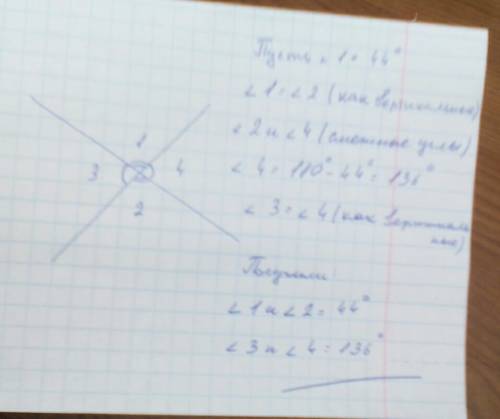 Пусть ∠1 = 44°
∠1 = ∠2 (как вертикальные)
∠2 и ∠4 (смежные углы)
∠4 = 180° - 44° = 136°
∠3 = ∠4 (как вертикаль
ные)
Получили
∠1 и ∠2 = 44°
∠3 и ∠4 = 136°
1
3 4
2